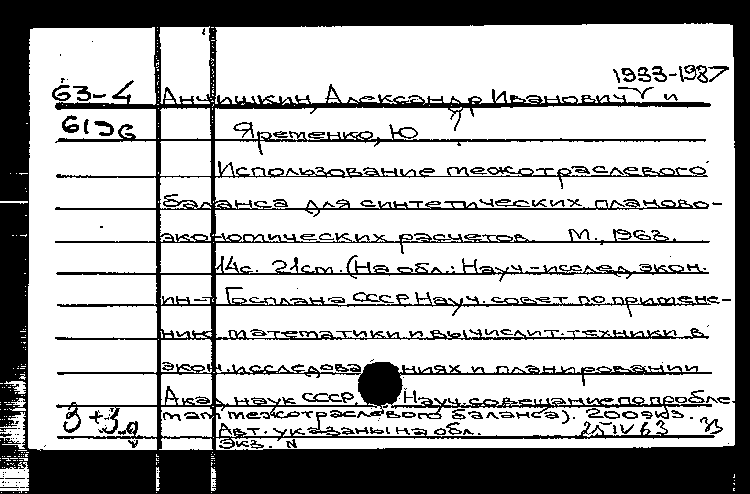 1933-1987
63-4 Анчишкин, Александр Иванович и
6196 Яременко, Ю
Использование межотраслевого
баланса для синтетических планово-
экономических расчетов. М., 1963.
14с. 21см. (На обл.: Науч.-исслед. экон.
ин-т Госплана СССР. Науч. совет по примене-
нию математики и вычислит. техники в
экон. исследованиях и планировании
Акад. наук СССР. Науч. совещание по пробле-
мам межотраслевого баланса). 200экз.
Авт. указаны на обл. 25 IV 63
Экз. N